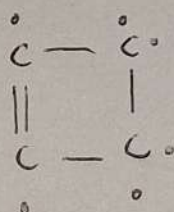 C — C
|| |
C — C